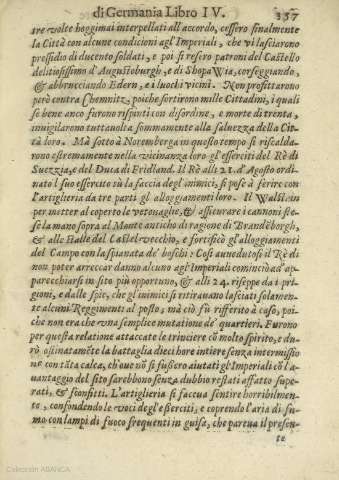 di Germania Libro IV. 357
tre volte hoggimai interpellati all'accordo, cessero finalmente
la Città con alcune condicioni agl'Imperiali, che vi lasciarono
pressidio di ducento soldati, e poi si resero patroni del Castello
delitiosissimo d'Augustoburgh, e di ShopaWia, corseggiando,
& abbrucciando Edern, e i luochi vicini. Non profittarono
però contra Chemnitz, poiche sortirono mille Cittadini, i quali
se bene anco furono rispinti con disordine, e morte di trenta,
invigilarono tuttauolta sommamente alla saluezza della Cit-
tà loro. Mà sotto à Noremberga in questo tempo si riscalda-
rono estremamente nella vicinanza loro gl'esserciti del Rè di
Suezzia, e del Duca di Fridland. Il Rè alli 21. d'Agosto ordi-
nato l suo essercito sù la faccia degl'inimici, si pose à ferire con
l'artigleria da tre parti gl'alloggiamenti loro. Il Walstain
per metter al coperto le vetouaglie, & assicurare i cannoni ste-
se la mano sopra al Monte antico di ragione di Brandēborgh,
& alle Halle del Castel vecchio, e fortificò gl'alloggiamenti
del Campo con la spianata de' boschi: Così auuedutosi il Rè di
non poter arreccar danno alcuno agl'Imperiali cominciò ad ap-
parecchiarsi in sito più opportuno, & alli 24. riseppe da i pri-
gioni, e dalle spie, che gl'inimici si ritirauano lasciati solamente
alcuni Reggimenti al posto, mà ciò fù riferito à caso, poi-
che non era che vna semplice mutatione de' quartieri. Furono
per questa relatione attaccate le trinciere cō molto spirito, e du-
rò ostinatamēte la battaglia dieci hore intiere senza intermissio
ne con tāta calca, che oue nō si fussero aiutati gl'Imperiali cō l'a-
uantaggio del sito sarebbono senza dubbio restati affatto supe-
rati, & sconfitti. L'artiglieria si faceua sentire horribilmen-
te, confondendo le voci degl'esserciti, e coprendo l'aria di fu-
mo con lampi di fuoco frequenti in guisa, che partua il presen-
te
Colección ABANCA